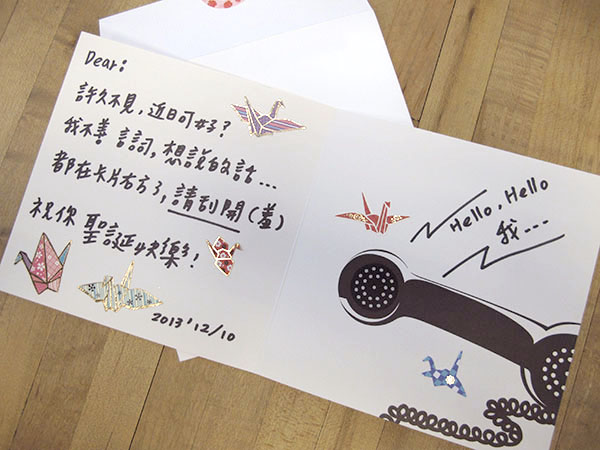 Dear:
許久不見,近日可好?
我不善言詞,想說的話...
都在卡片右方了,請刮開(羞)
祝你聖誕快樂!
2013'12/10
Hello, Hello
我...